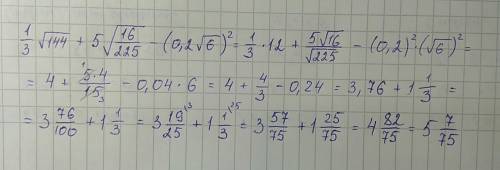 1/3 √144 + 5√(16/225) − (0,2√6)² = 1/3 · 12 + 5√16/√225 − (0,2)² · (√6)² =
= 4 + 5·4/15 − 0,04 · 6 = 4 + 4/3 − 0,24 = 3,76 + 1 1/3 =
= 3 76/100 + 1 1/3 = 3 19/25 + 1 1/3 = 3 57/75 + 1 25/75 = 4 82/75 = 5 7/75